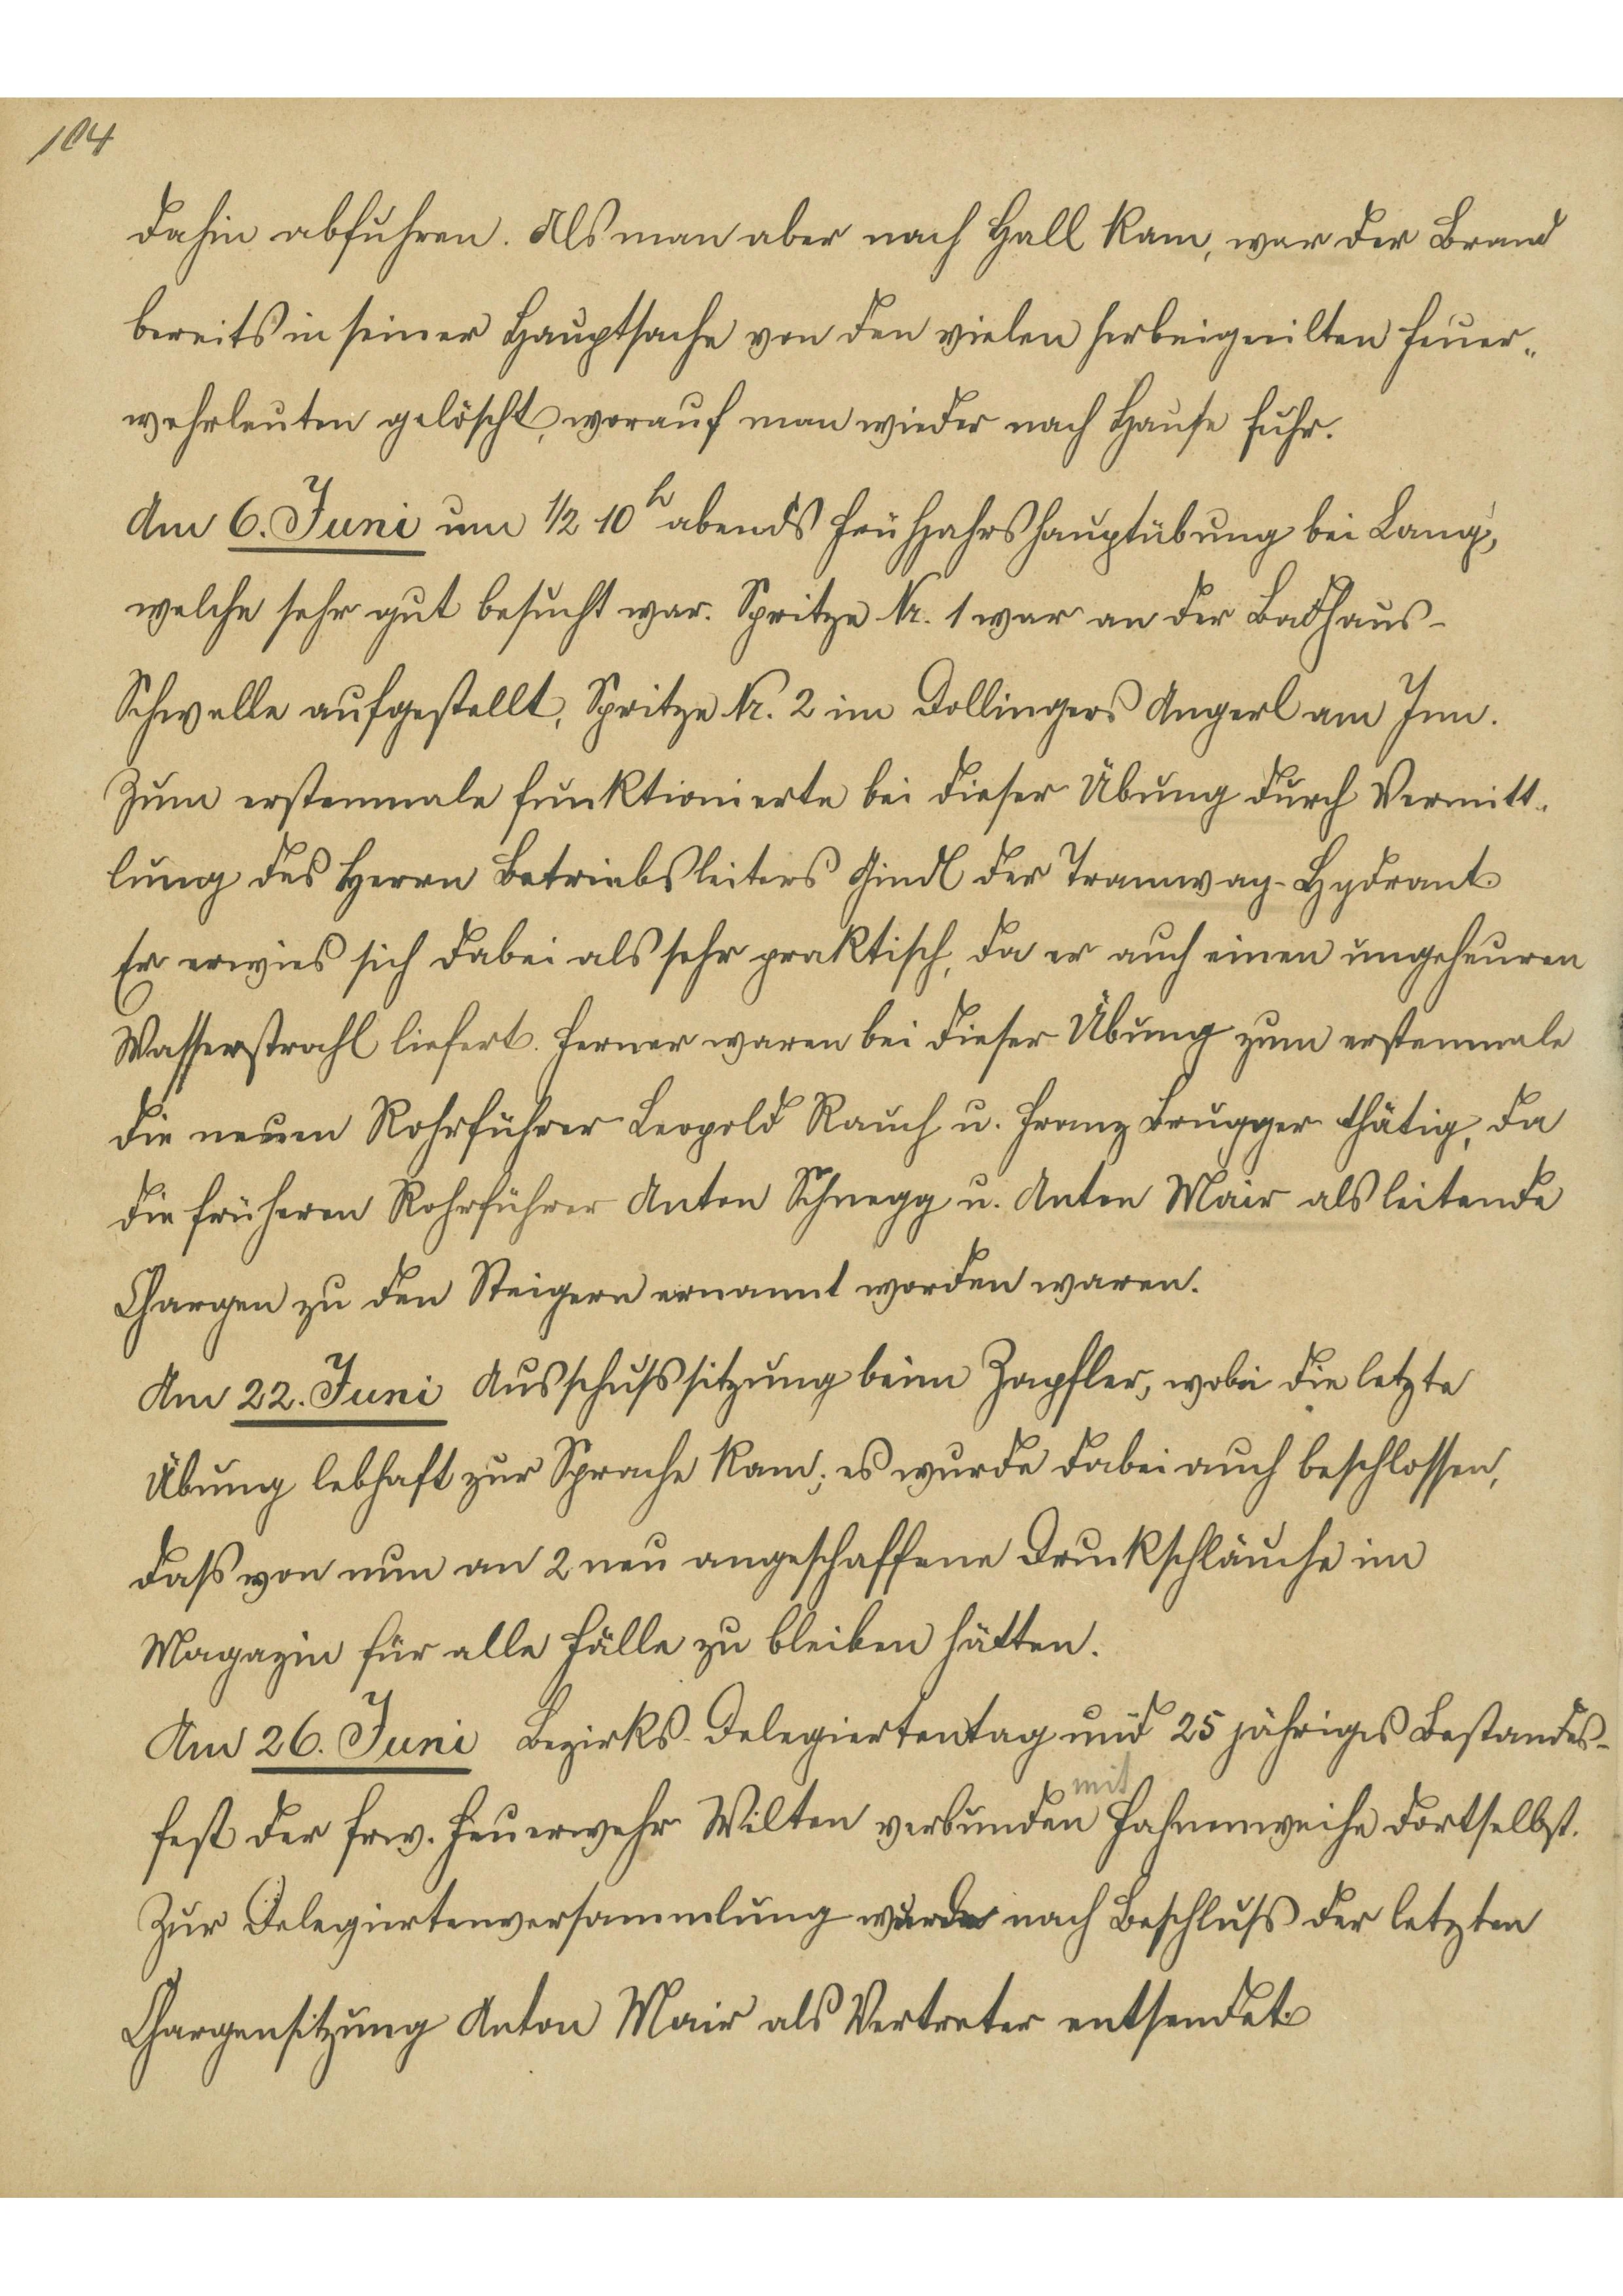 104
dahin abfuhren. Als man aber nach Hall kam, war der Brand
bereits in seiner Hauptsache von den vielen herbeigeeilten Feuer-
wehrleuten gelöscht, worauf man wieder nach Hause fuhr.
Am 6. Juni um 1/2 10 h abends Frühjahrshauptübung bei Lang,
welche sehr gut besucht war. Spritze Nr. 1 war an der Badhaus-
Schwelle aufgestellt, Spritze Nr. 2 im Dollingers Angerl am Inn.
Zum erstenmale funktionierte bei dieser Übung durch Vermitt-
lung des Herrn Betriebsleiters Gindl der Tramway-Hydrant.
Er erwies sich dabei als sehr praktisch, da er auch einen ungeheuren
Wasserstrahl liefert. Ferner waren bei dieser Übung zum erstenmale
die neuen Rohrführer Leopold Rauch u. Franz Brugger thätig, da
die früheren Rohrführer Anton Schnegg u. Anton Mair als leitende
Chargen zu den Steigern ernannt worden waren.
Am 22. Juni Ausschußsitzung beim Zapfler, wobei die letzte
Übung lebhaft zur Sprache kam; es wurde dabei auch beschlossen,
daß von nun an 2 neu angeschaffene Druckschläuche im
Magazin für alle Fälle zu bleiben hätten.
Am 26. Juni Bezirks-Delegiertentag und 25 jähriges Bestandes-
fest der frw. Feuerwehr Wilten verbunden mit Fahnenweihe dortselbst.
Zur Delegiertenversammlung wurde nach Beschluß der letzten
Chargensitzung Anton Mair als Vertreter entsendet.